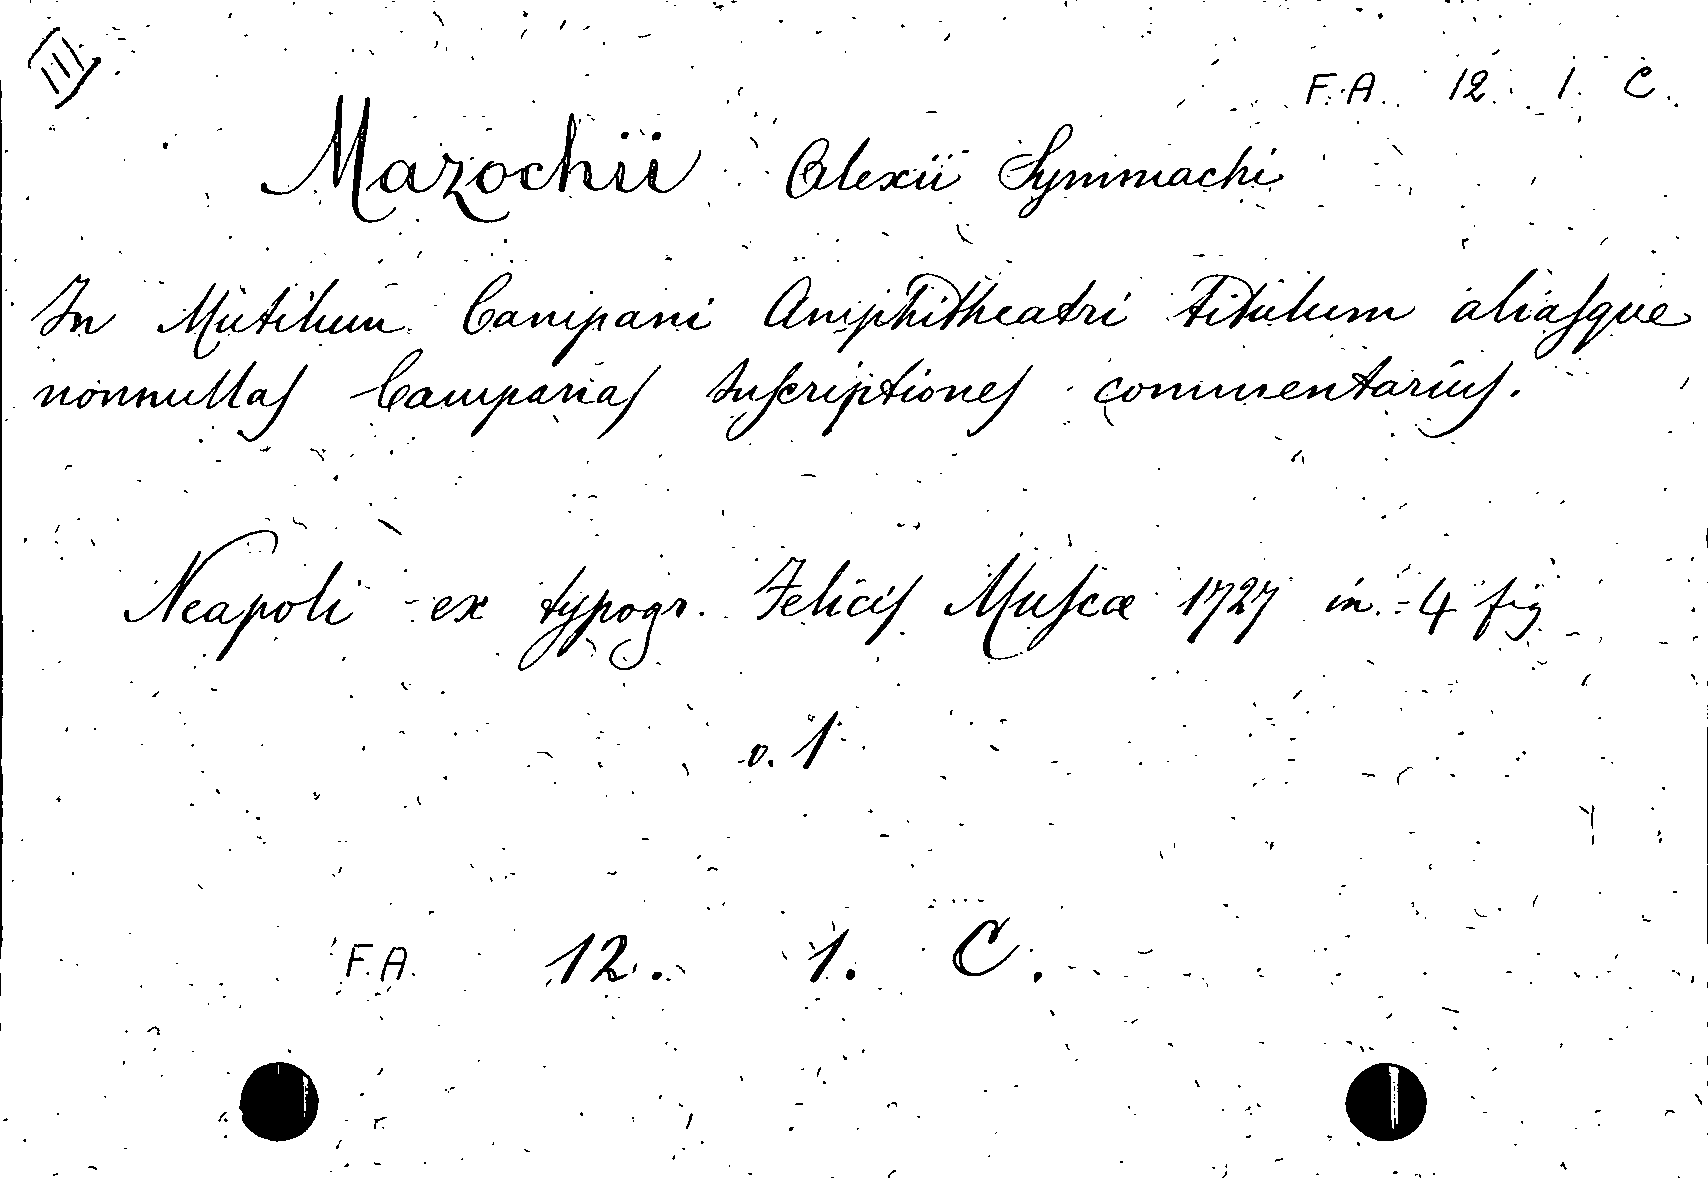 III
F. A. 12. 1. C.
Mazochii Alexii Symmachi
In Mutilum Campani Amphitheatri titulum aliasque
nonnullas Campanas Inscriptiones commentarius.
Neapoli ex typogr. Felicis Muscæ 1727 in-4 fig
v. 1
F. A. 12. 1. C.